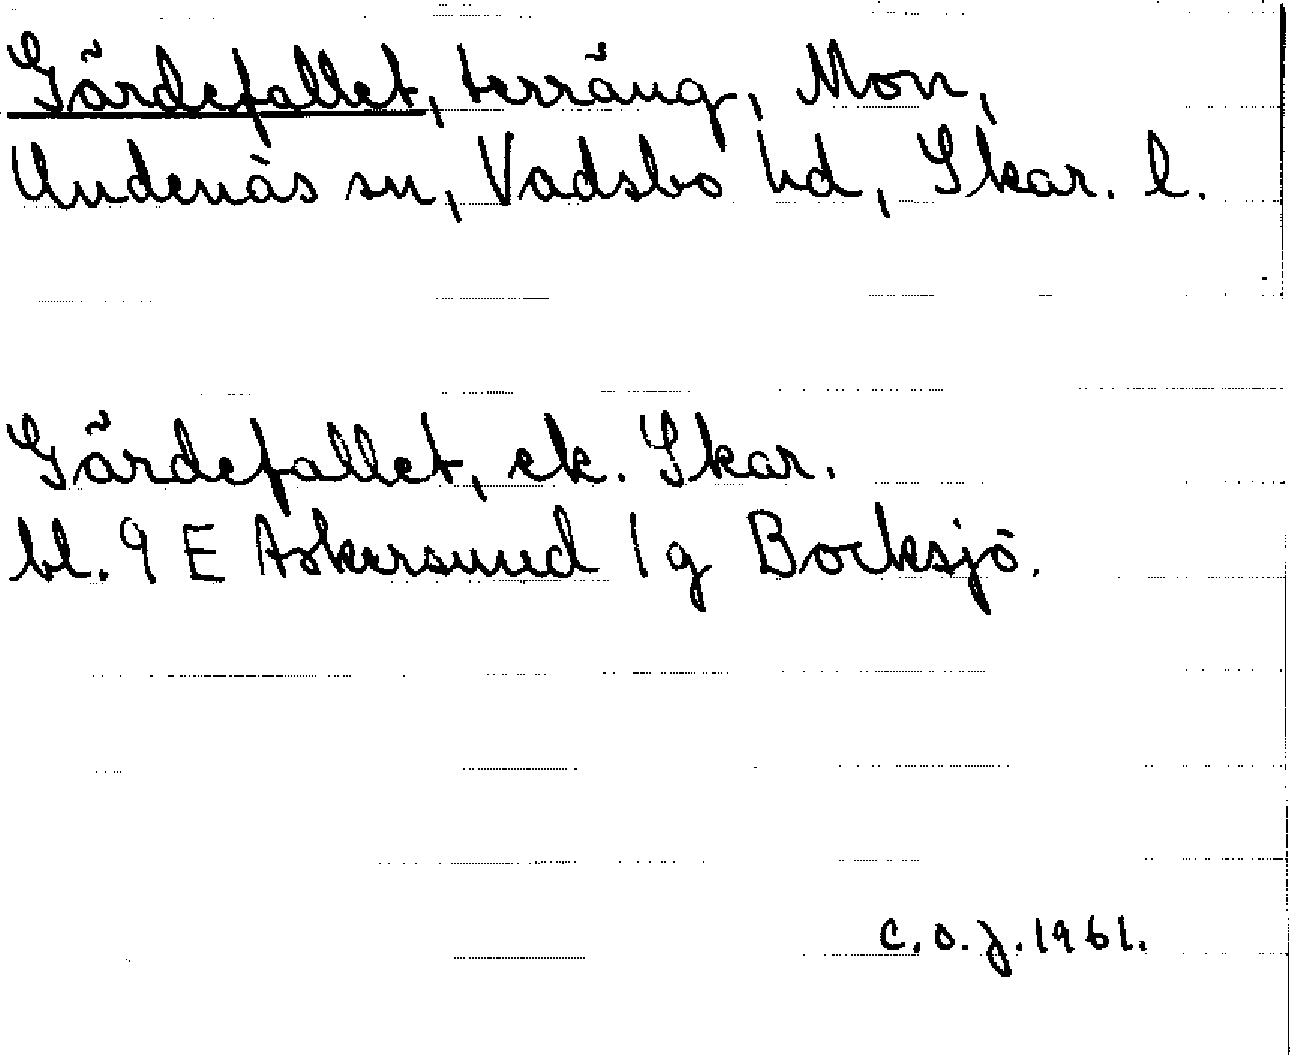 Gärdefallet, terräng, Mon,
Undenäs sn, Vadsbo hd, Skar. l.
Gärdefallet, ek. Skar.
bl. 9 E Askersund 1g Bocksjö.
C.O.J. 1961.